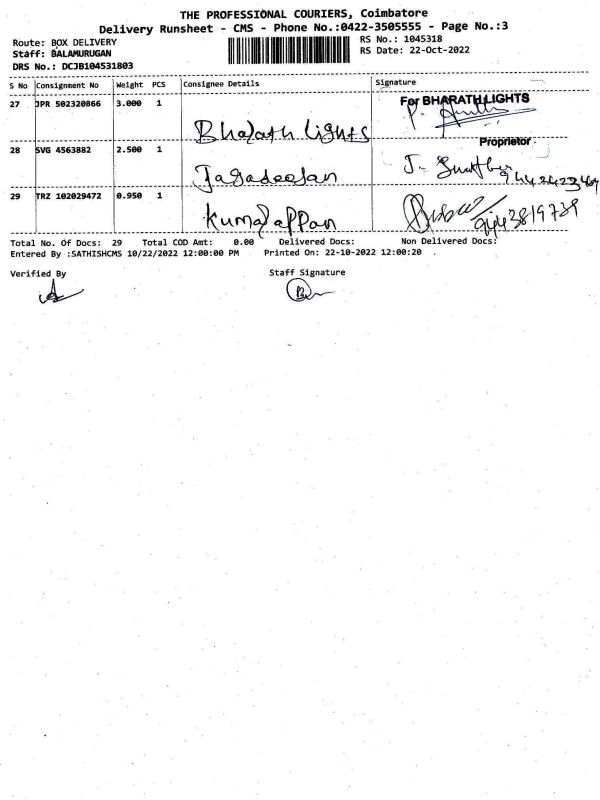 THE PROFESSIONAL COURIERS, Coimbatore
Delivery Runsheet - CMS - Phone No.:0422-3505555 - Page No.:3
Route: BOX DELIVERY
RS No.: 1045318
Staff: BALAMURUGAN
RS Date: 22-Oct-2022
DRS No.: DCJB104531803
S No Consignment No Weight PCS Consignee Details Signature
27 JPR 502320866 3.000 1 For BHARATH LIGHTS
Bharath Lights
Proprietor
28 SVG 4563882 2.500 1
Jagadeesan
29 TRZ 102029472 0.950 1
Kumarappan 9443819739
Total No. Of Docs: 29 Total COD Amt: 0.00 Delivered Docs: Non Delivered Docs:
Entered By :SATHISHCMS 10/22/2022 12:00:00 PM Printed On: 22-10-2022 12:00:20
Verified By Staff Signature